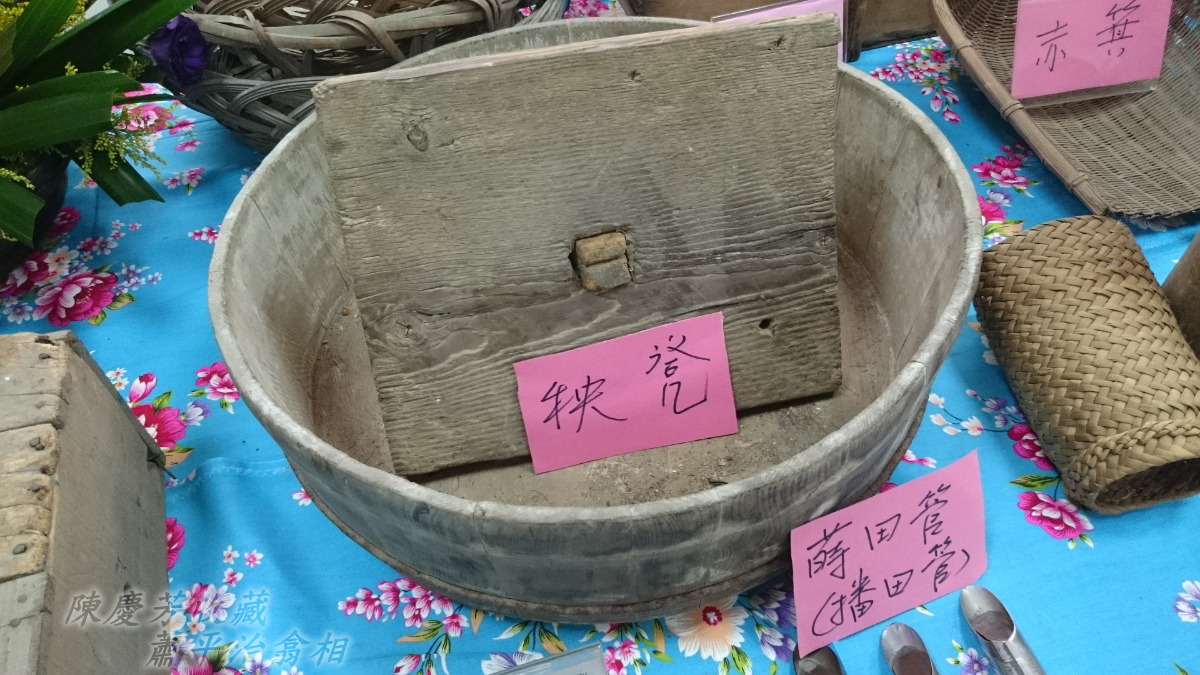 赤箕
秧凳
蒔田管
(播田管)
陳慶芳收藏
蕭平治翕相